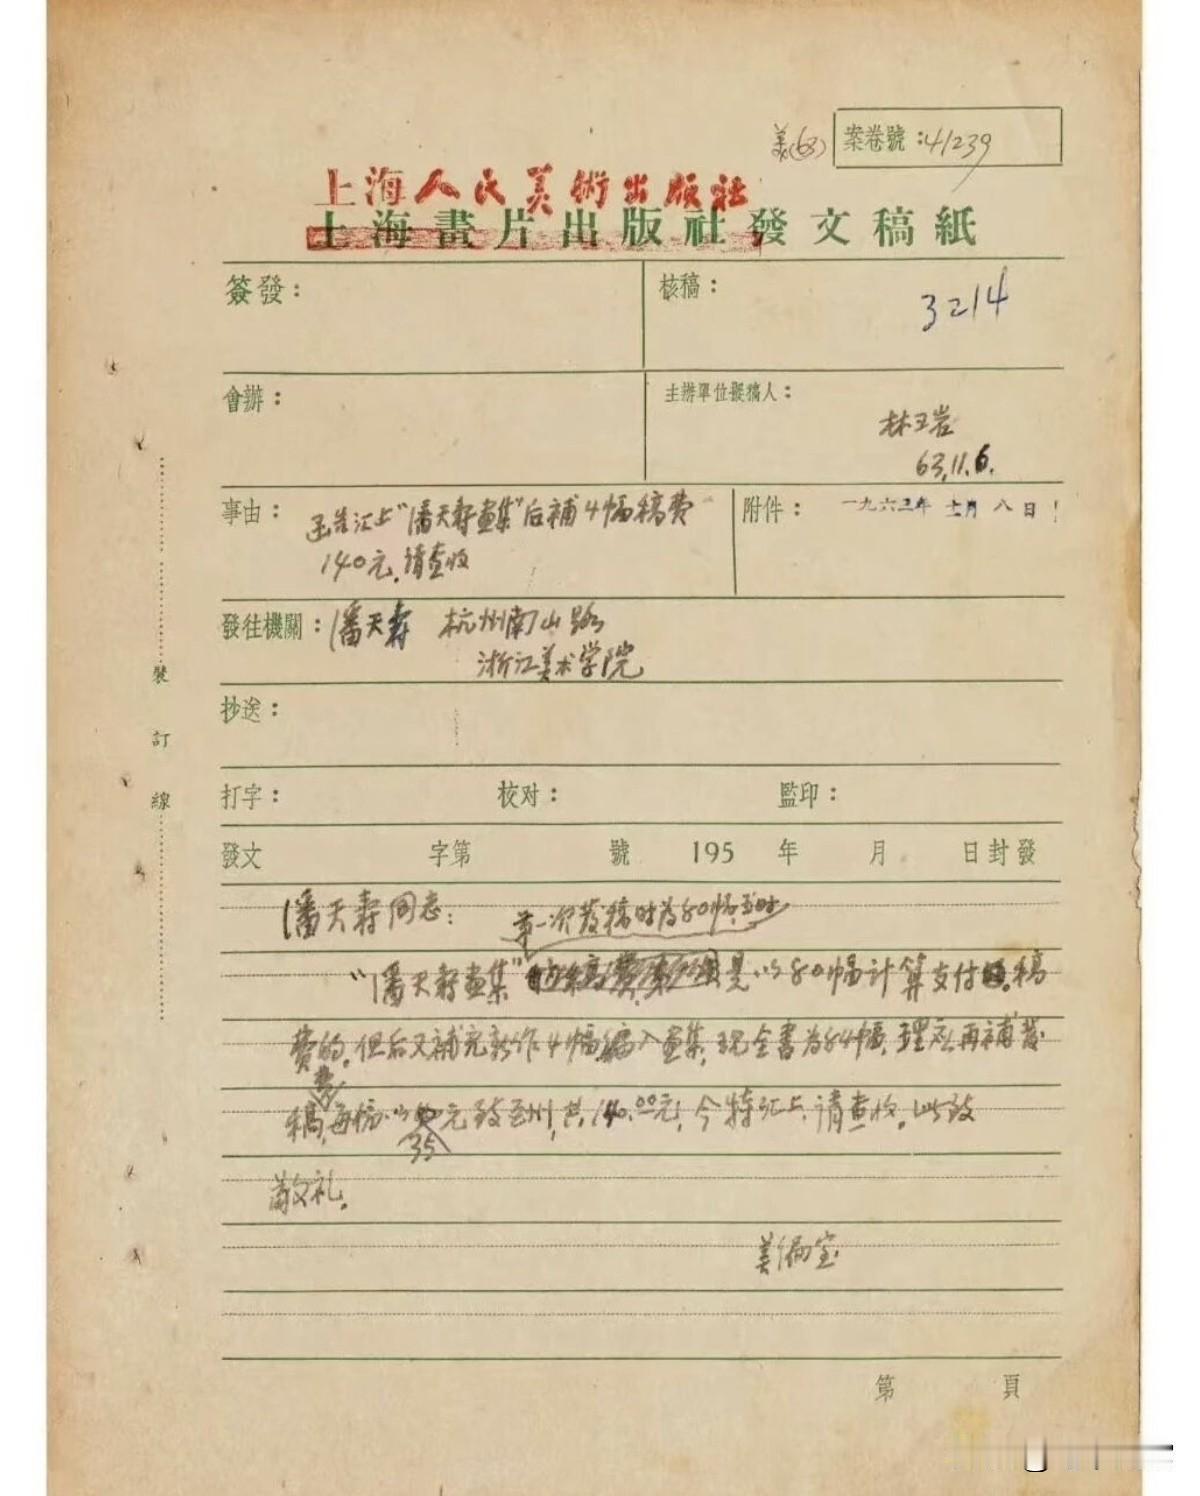 美(63) 案卷號：41239
上海人民美術出版社
上海畫片出版社發文稿紙
簽發：
核稿：
3214
會辦：
主辦單位擬稿人：
林玉岩
63.11.6.
事由：函告汇上“潘天寿画集”后補4幅稿费
140元，请查收
附件：
一九六三年 十一月 八日
發往機關：潘天寿 杭州南山路
浙江美术学院
抄送：
裝訂線
打字： 校对： 監印：
發文 字第 號 195 年 月 日封發
潘天寿同志：
第一次发稿时为80幅，当时
“潘天寿画集”是以80幅计算支付稿
费的。但后又補充新作4幅编入画集，现全書为84幅，理应再補发
稿费，每幅以35元致，共140.00元，今特汇上，请查收。此致
敬礼。
美编室
第 頁